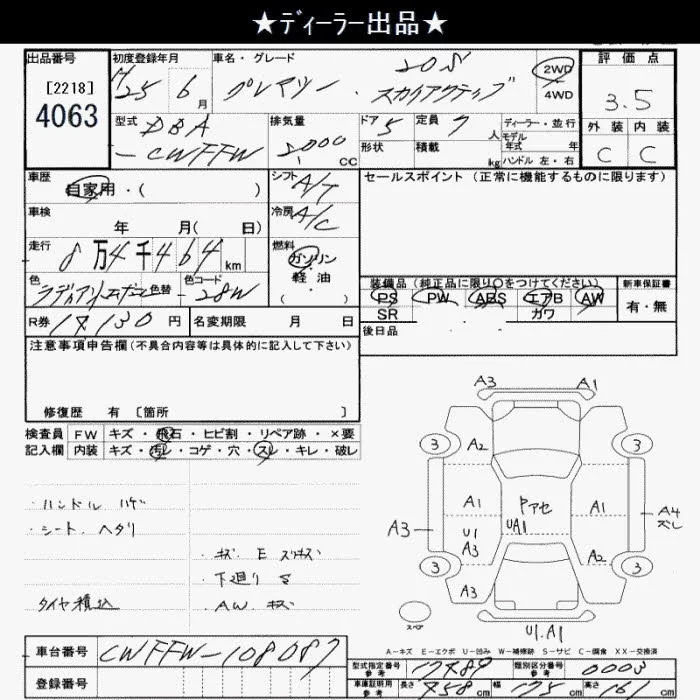 ★ディーラー出品★
出品番号
[2218]
4063
初度登録年月
H25 6月
車名・グレード
プレマシー・20S スカイアクティブ
2WD
4WD
評価点
3.5
外装 内装
C C
型式
DBA
-CWFFW
排気量
2000
CC
ドア 5
形状
定員 7 人
積載 kg
ディーラー・並行
モデル
年式 年
ハンドル 左・右
車歴
自家用・( )
シフト A/T
車検
年 月( 日)
冷房 A/C
走行
8万4千464km
燃料
ガソリン
軽油
( )
色
色替
色コード
28W
R券 17,130円
名変期限 月 日
セールスポイント (正常に機能するものに限ります)
装備品(純正品に限り○をつけてください)
PS PW ABS エアB AW
SR ガワ
新車保証書
有・無
後日品
注意事項申告欄(不具合内容等は具体的に記入して下さい)
修復歴 有 [箇所 ]
検査員 FW キズ・飛石・ヒビ割・リペア跡・×要
記入欄 内装 キズ・汚レ・コゲ・穴・スレ・キレ・破レ
・ハンドル ハゲ
・シート ヘタリ
・キズ E スリキズ
・下廻り S
タイヤ積込
・AW キズ
A3 A1
3 A2 3
A1 Pアセ A1 A4
ズレ
A3 U1 UA1
A3 A2
3 3
A3
スペア
U1.A1
A-キズ E-エクボ U-凹み W-補修跡 S-サビ C-腐食 XX-交換済
車台番号 CWFFW-108087
登録番号
型式指定番号
参考
類別区分番号
参考
0003
車庫証明用
参考
長さ 458cm 幅 175cm 高さ 161cm